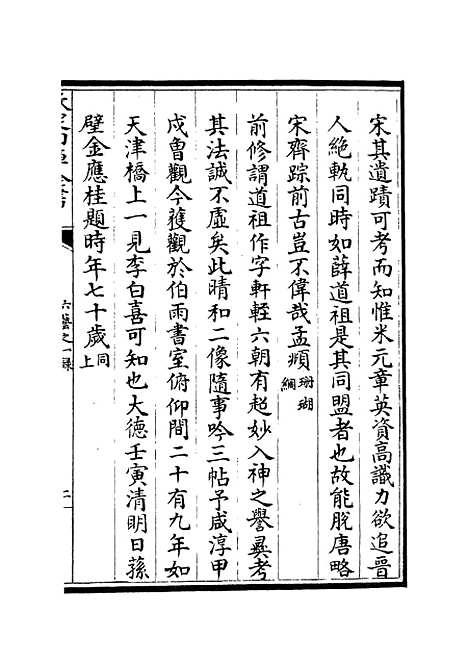 宋其遺蹟可考而知惟米元章英資高識力欲追晉
人絶軌同時如薛道祖是其同盟者也故能脫唐略
宋齊踪前古豈不偉哉孟頫珊瑚網
前修謂道祖作字軒輊六朝有超妙入神之譽彛考
其法誠不虛矣此晴和二像隨事吟三帖予咸淳甲
戌曾觀今獲觀於伯雨書室俯仰間二十有九年如
天津橋上一見李白喜可知也大德壬寅清明日蓀
壁金應桂題時年七十歲同上
六藝之一錄